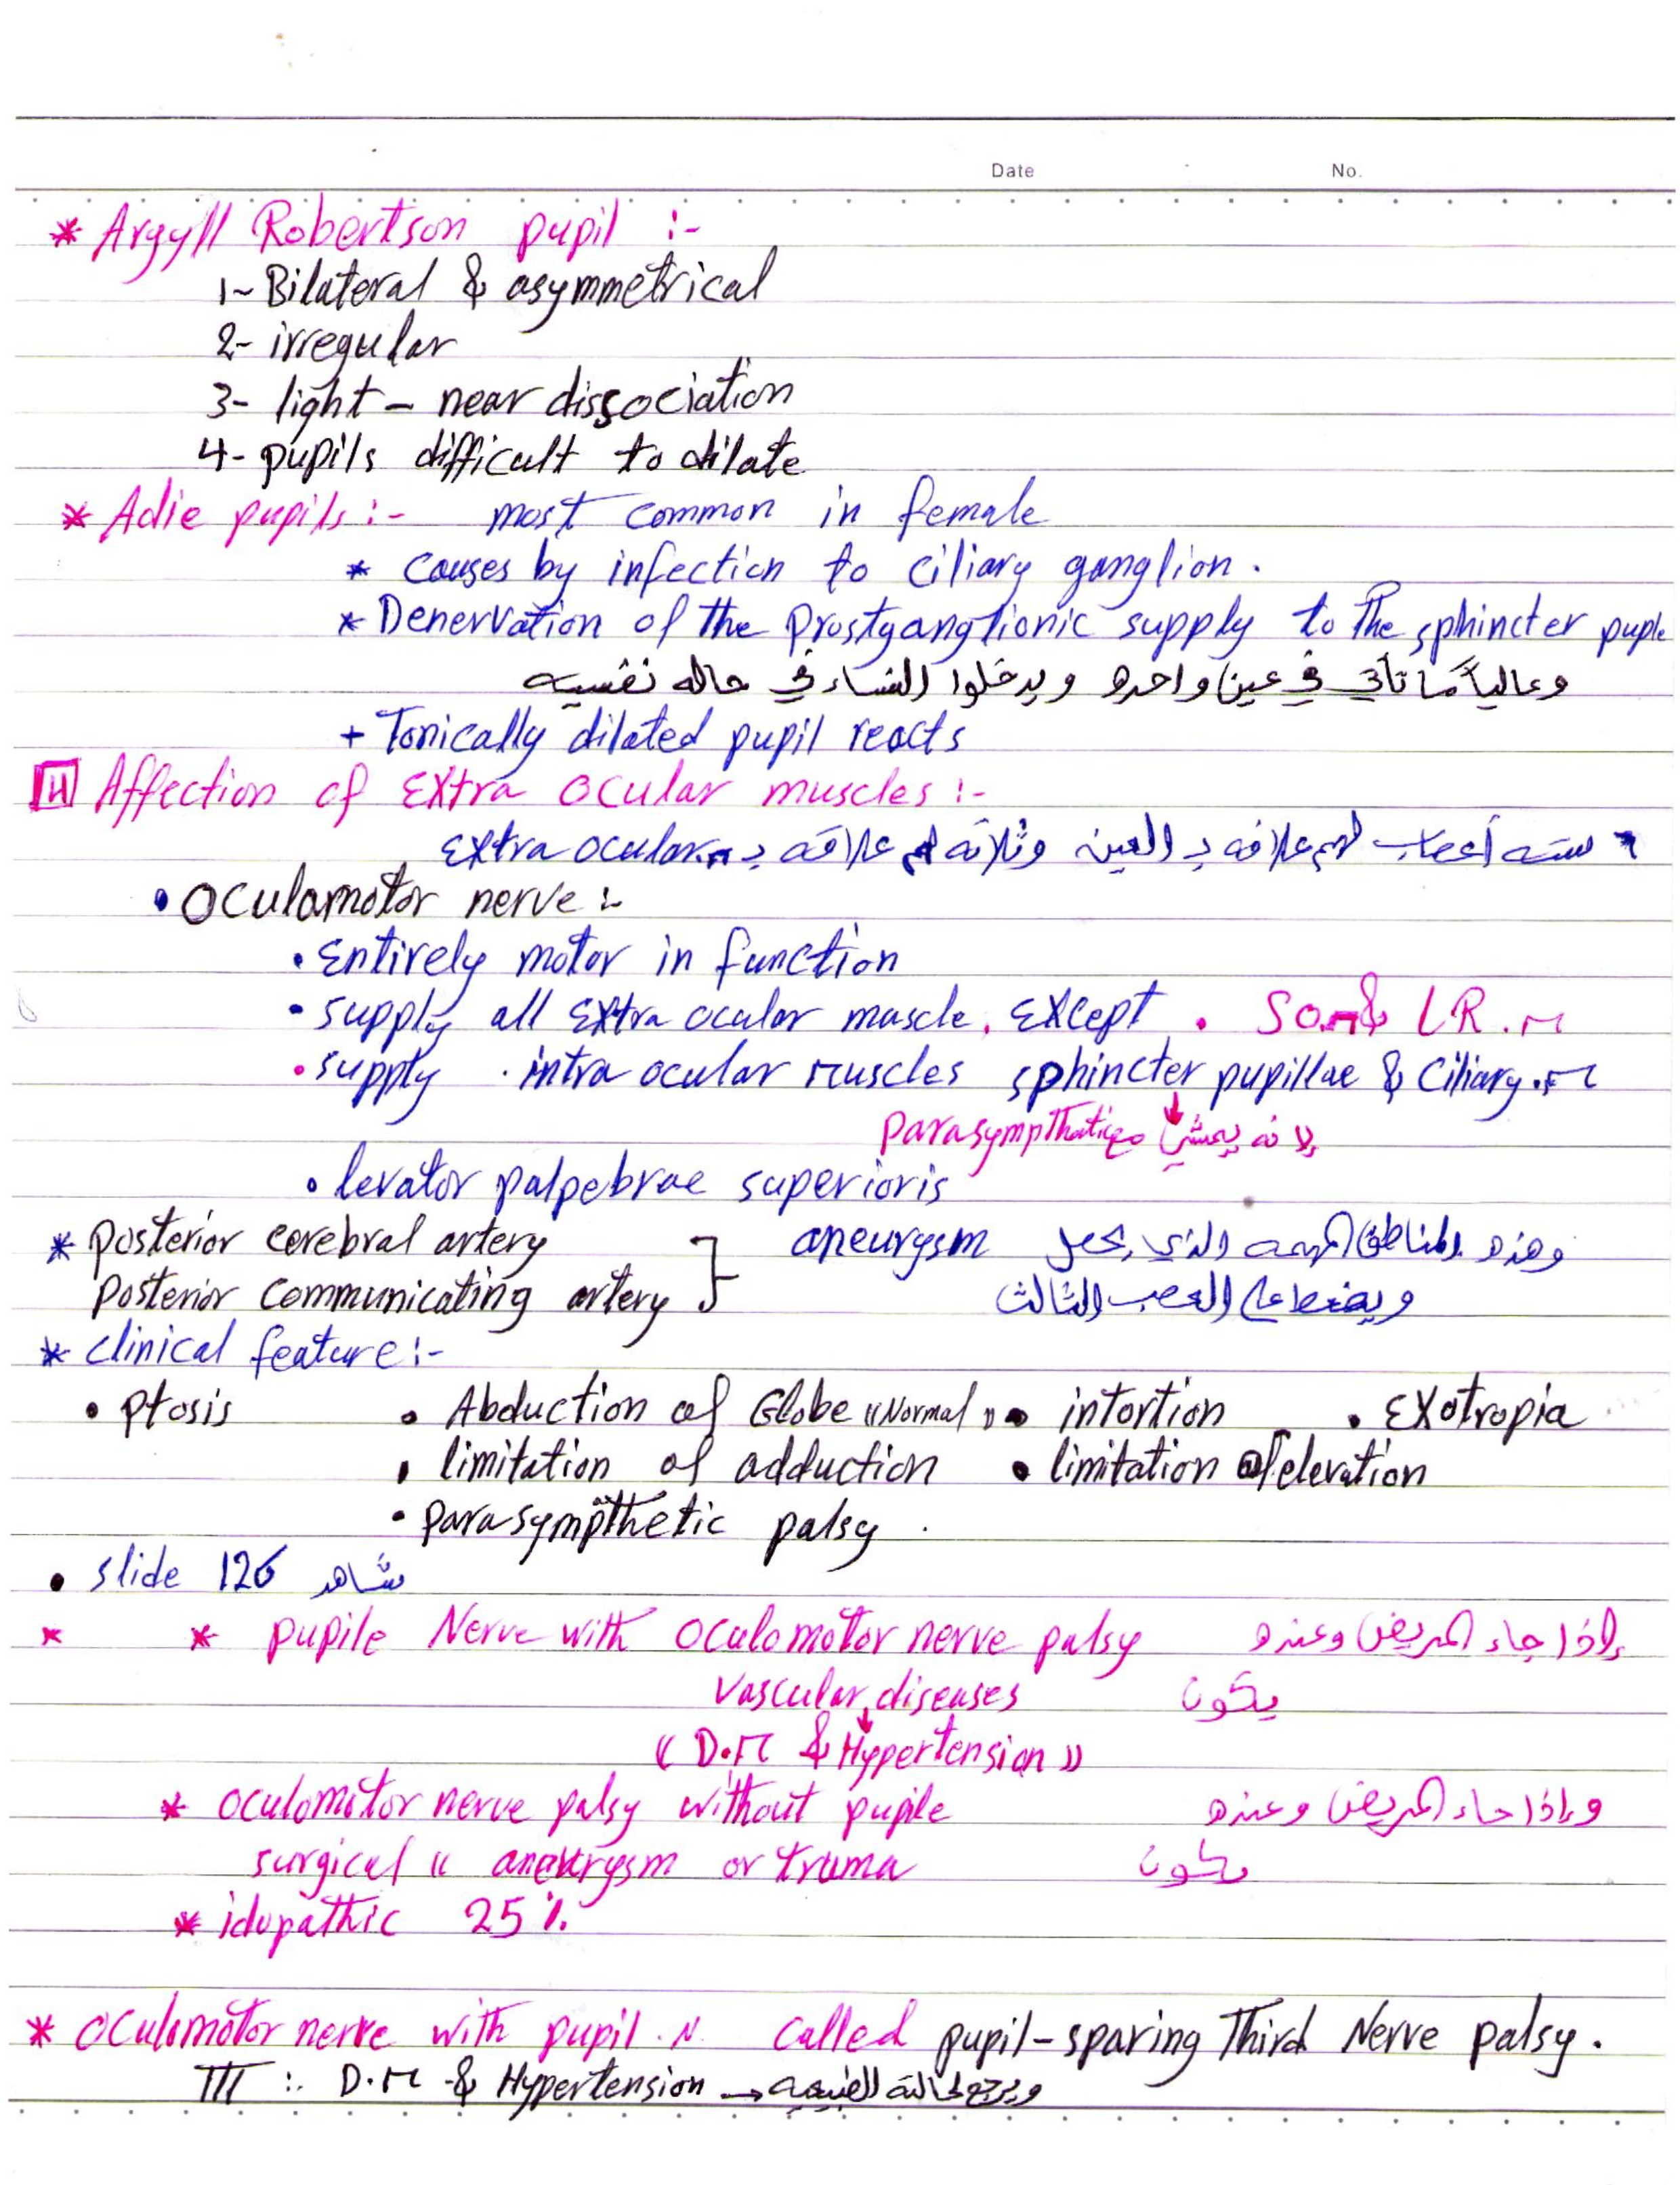 Date No.
* Argyll Robertson pupil :-
1- Bilateral & asymmetrical
2- irregular
3- light - near dissociation
4- pupils difficult to dilate
* Adie pupils :- most common in female
* causes by infection to ciliary ganglion.
* Denervation of the Prostganglionic supply to the sphincter puple
وغالباً ما تأتي في عين واحده ويدخلوا النساء في حاله نفسيه
+ Tonically dilated pupil reacts
Affection of Extra ocular muscles :-
سته أعصاب لهم علاقه بـ العين وثلاثه لهم علاقه بـ extra ocular.m
• Oculamotor nerve :-
• Entirely motor in function
• supply all Extra ocular muscle. Except. SO.m & LR.m
• supply . intra ocular muscles sphincter pupillae & Ciliary.m
لانه يمشي مع Parasympthatic
• levator palpebrae superioris
* posterior cerebral artery
aneurysm وهذه المناطق المهمه الذي يحصل
Posterior communicating artery
ويضغط على العصب الثالث
* clinical feature :-
• ptosis • Abduction of Globe "Normal" • intortion • Exotropia
• limitation of adduction • limitation of elevation
• parasympthetic palsy .
• slide 126 شاهد
* * pupile Nerve with oculomotor nerve palsy إذا جاء المريض وعنده
Vascular diseases يكون
(( D.M & Hypertension ))
* oculomotor nerve palsy without pupile وإذا جاء المريض وعنده
surgical (( aneurysm or truma يكون
* idopathic 25 %
* oculomotor nerve with pupil . N. called pupil-sparing Third Nerve palsy.
TTT :. D.M & Hypertension →